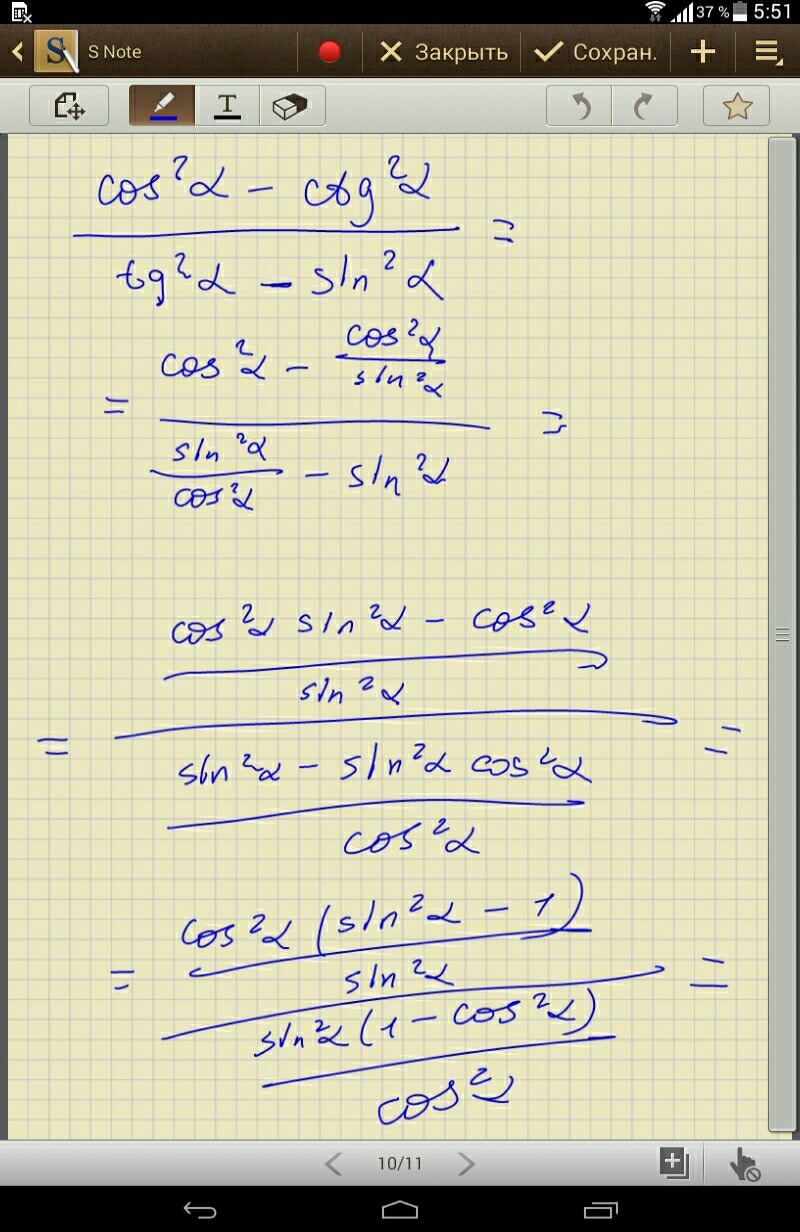 37 % 5:51
S Note Закрыть Сохран.
T
cos²α − ctg²α
=
tg²α − sin²α
cos²α − cos²α / sin²α
= =
sin²α / cos²α − sin²α
cos²α sin²α − cos²α
sin²α
= =
sin²α − sin²α cos²α
cos²α
cos²α (sin²α − 1)
sin²α
= =
sin²α (1 − cos²α)
cos²α
10/11